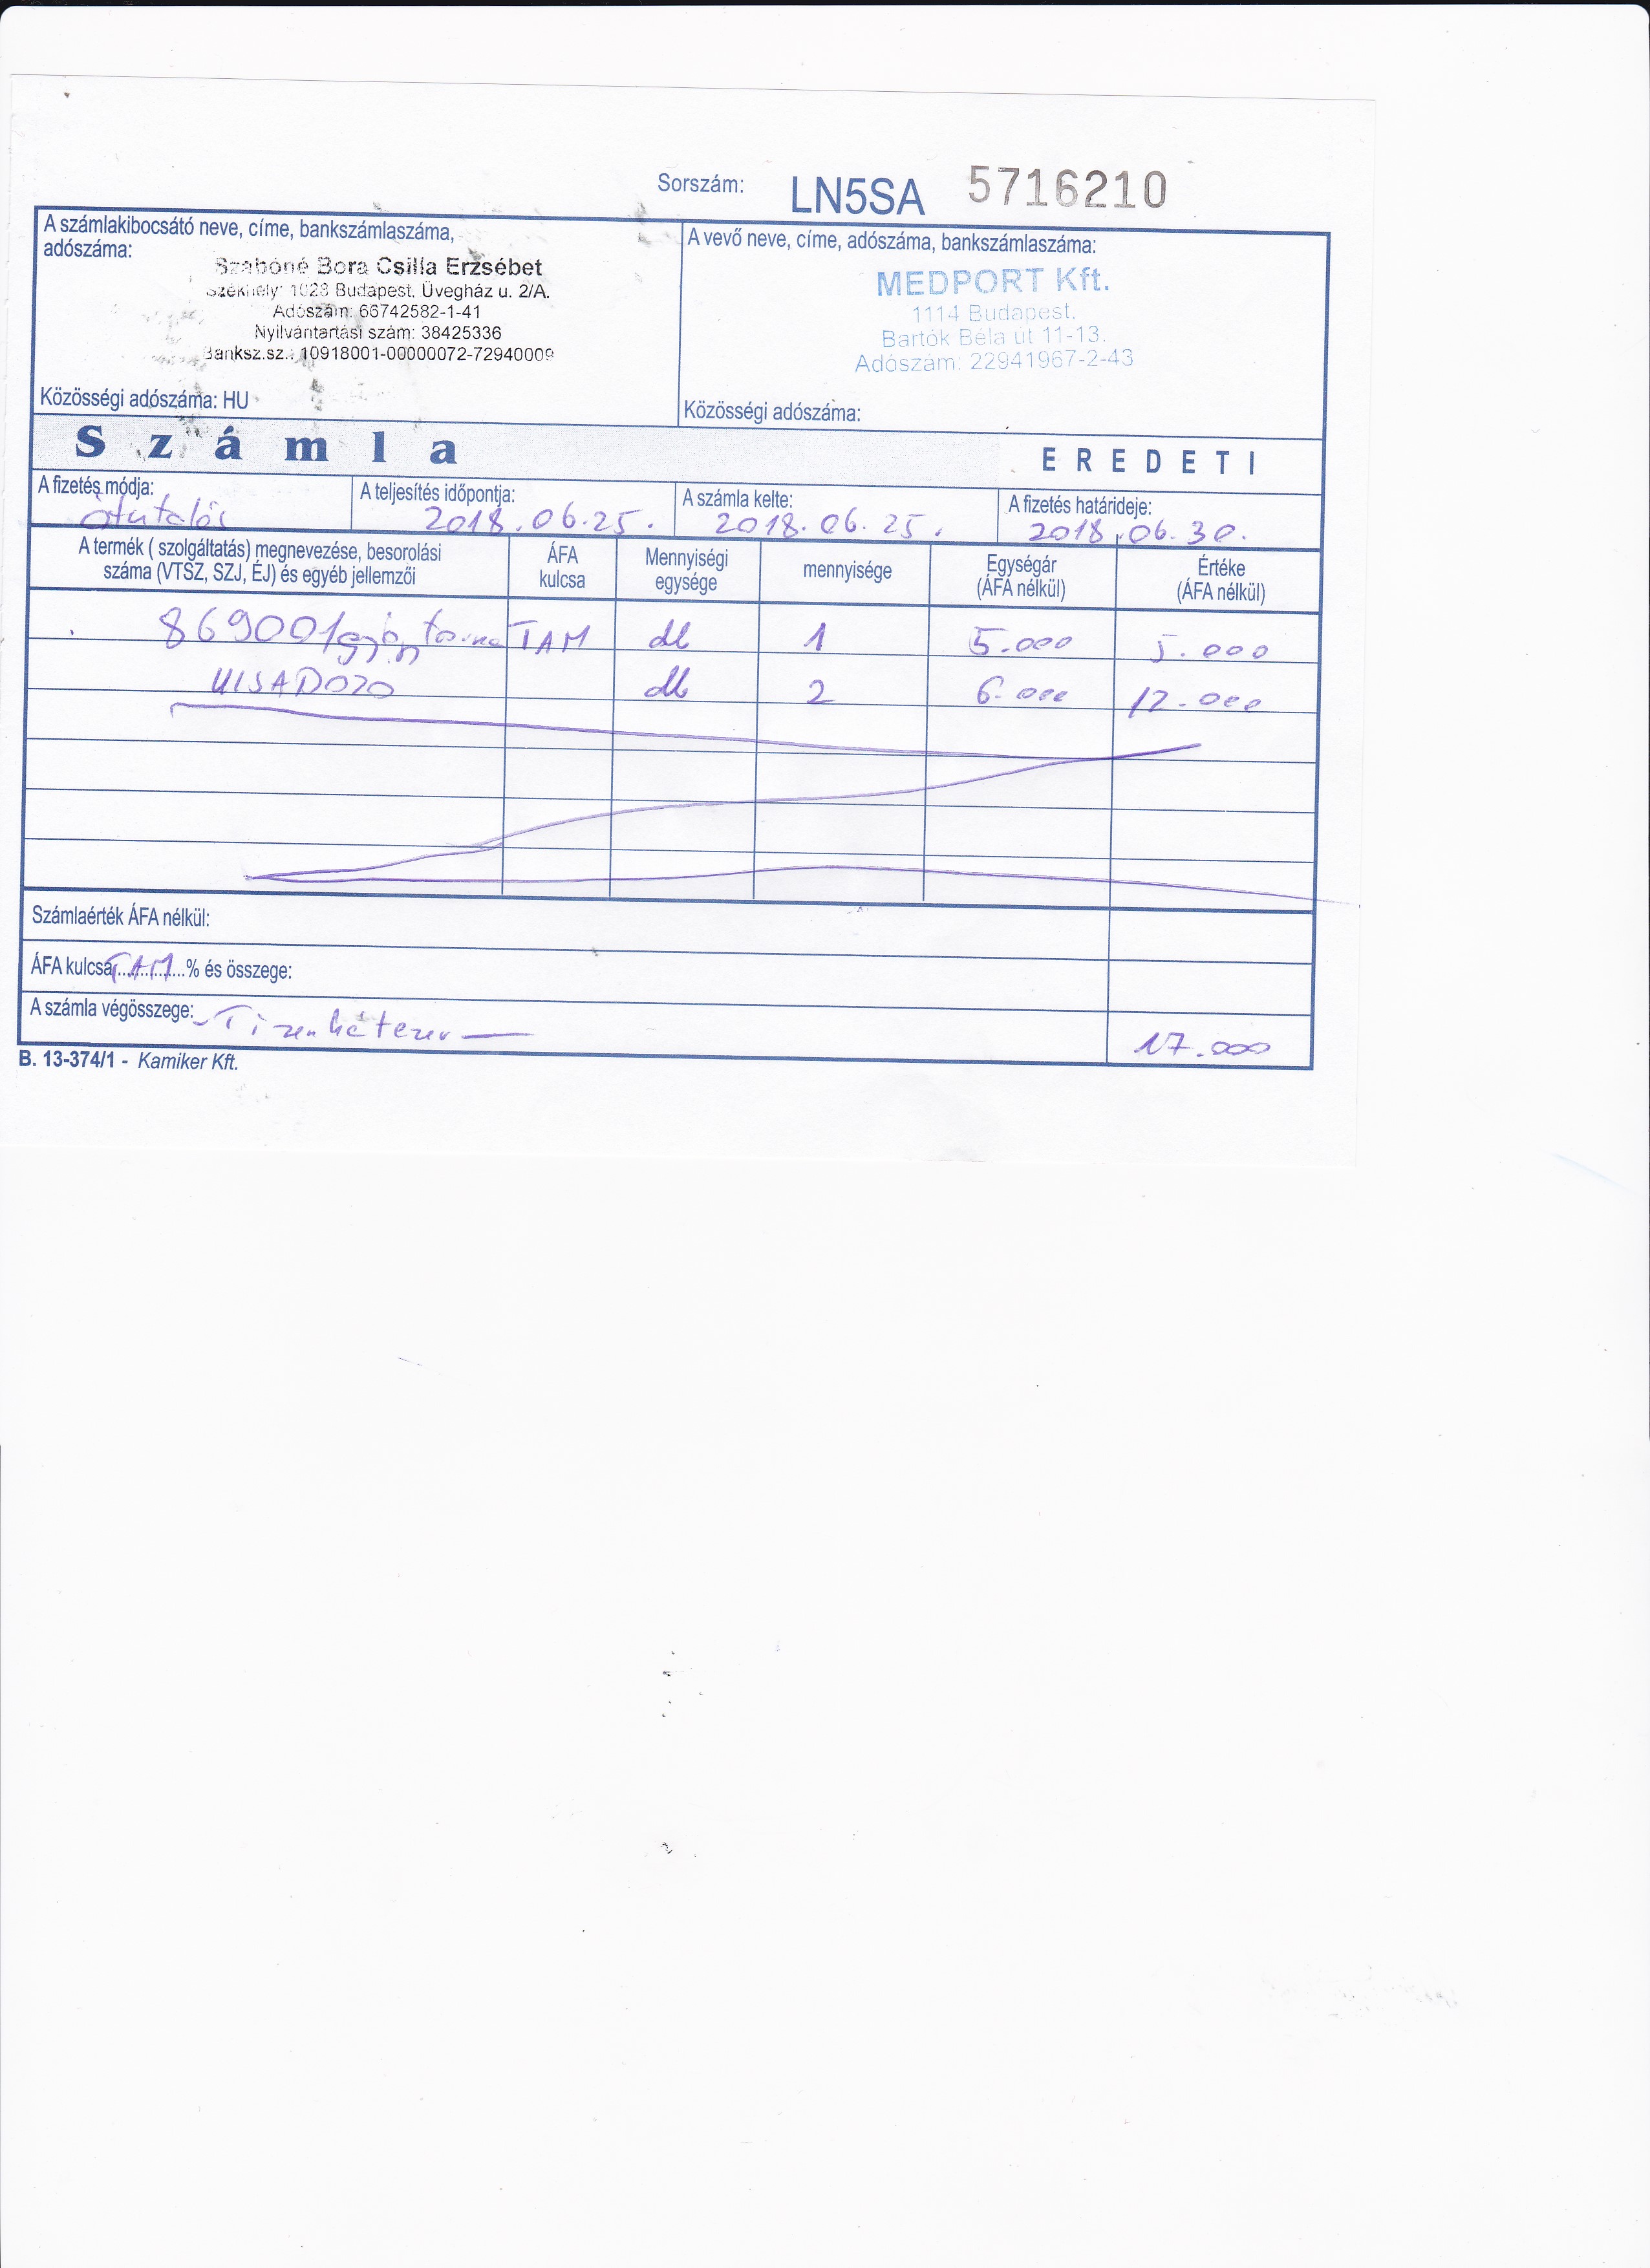 Sorszám: LN5SA 5716210
A számlakibocsátó neve, címe, bankszámlaszáma,
adószáma:
Szabóné Bora Csilla Erzsébet
Székhely: 1028 Budapest, Üvegház u. 2/A.
Adószám: 66742582-1-41
Nyilvántartási szám: 38425336
Banksz.sz.: 10918001-00000072-72940009
Közösségi adószáma: HU
A vevő neve, címe, adószáma, bankszámlaszáma:
MEDPORT Kft.
1114 Budapest,
Bartók Béla út 11-13.
Adószám: 22941967-2-43
Közösségi adószáma:
Számla EREDETI
A fizetés módja: A teljesítés időpontja: A számla kelte: A fizetés határideje:
átutalás 2018.06.25. 2018.06.25. 2018.06.30.
A termék ( szolgáltatás) megnevezése, besorolási
száma (VTSZ, SZJ, ÉJ) és egyéb jellemzői
ÁFA
kulcsa
Mennyiségi
egysége
mennyisége
Egységár
(ÁFA nélkül)
Értéke
(ÁFA nélkül)
869001 torna TAM db 1 5.000 5.000
db 2 6.000 12.000
Számlaérték ÁFA nélkül:
ÁFA kulcsa TAM % és összege:
A számla végösszege: - Tizenhétezer — 17.000
B. 13-374/1 - Kamiker Kft.